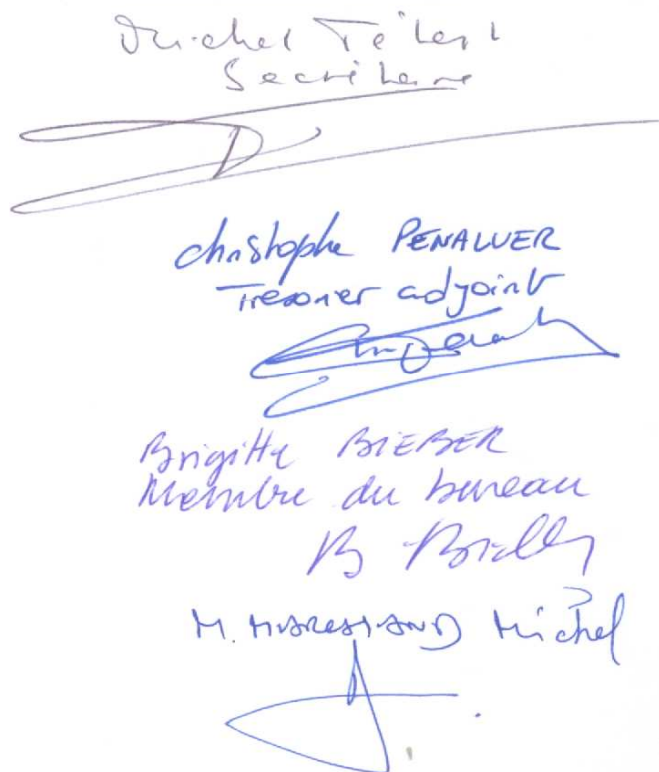 Michel
Secrétaire
christophe PENALVER
Tresorier adjoint
Brigitte BIEBER
Membre du bureau
M. MARCHAND Michel